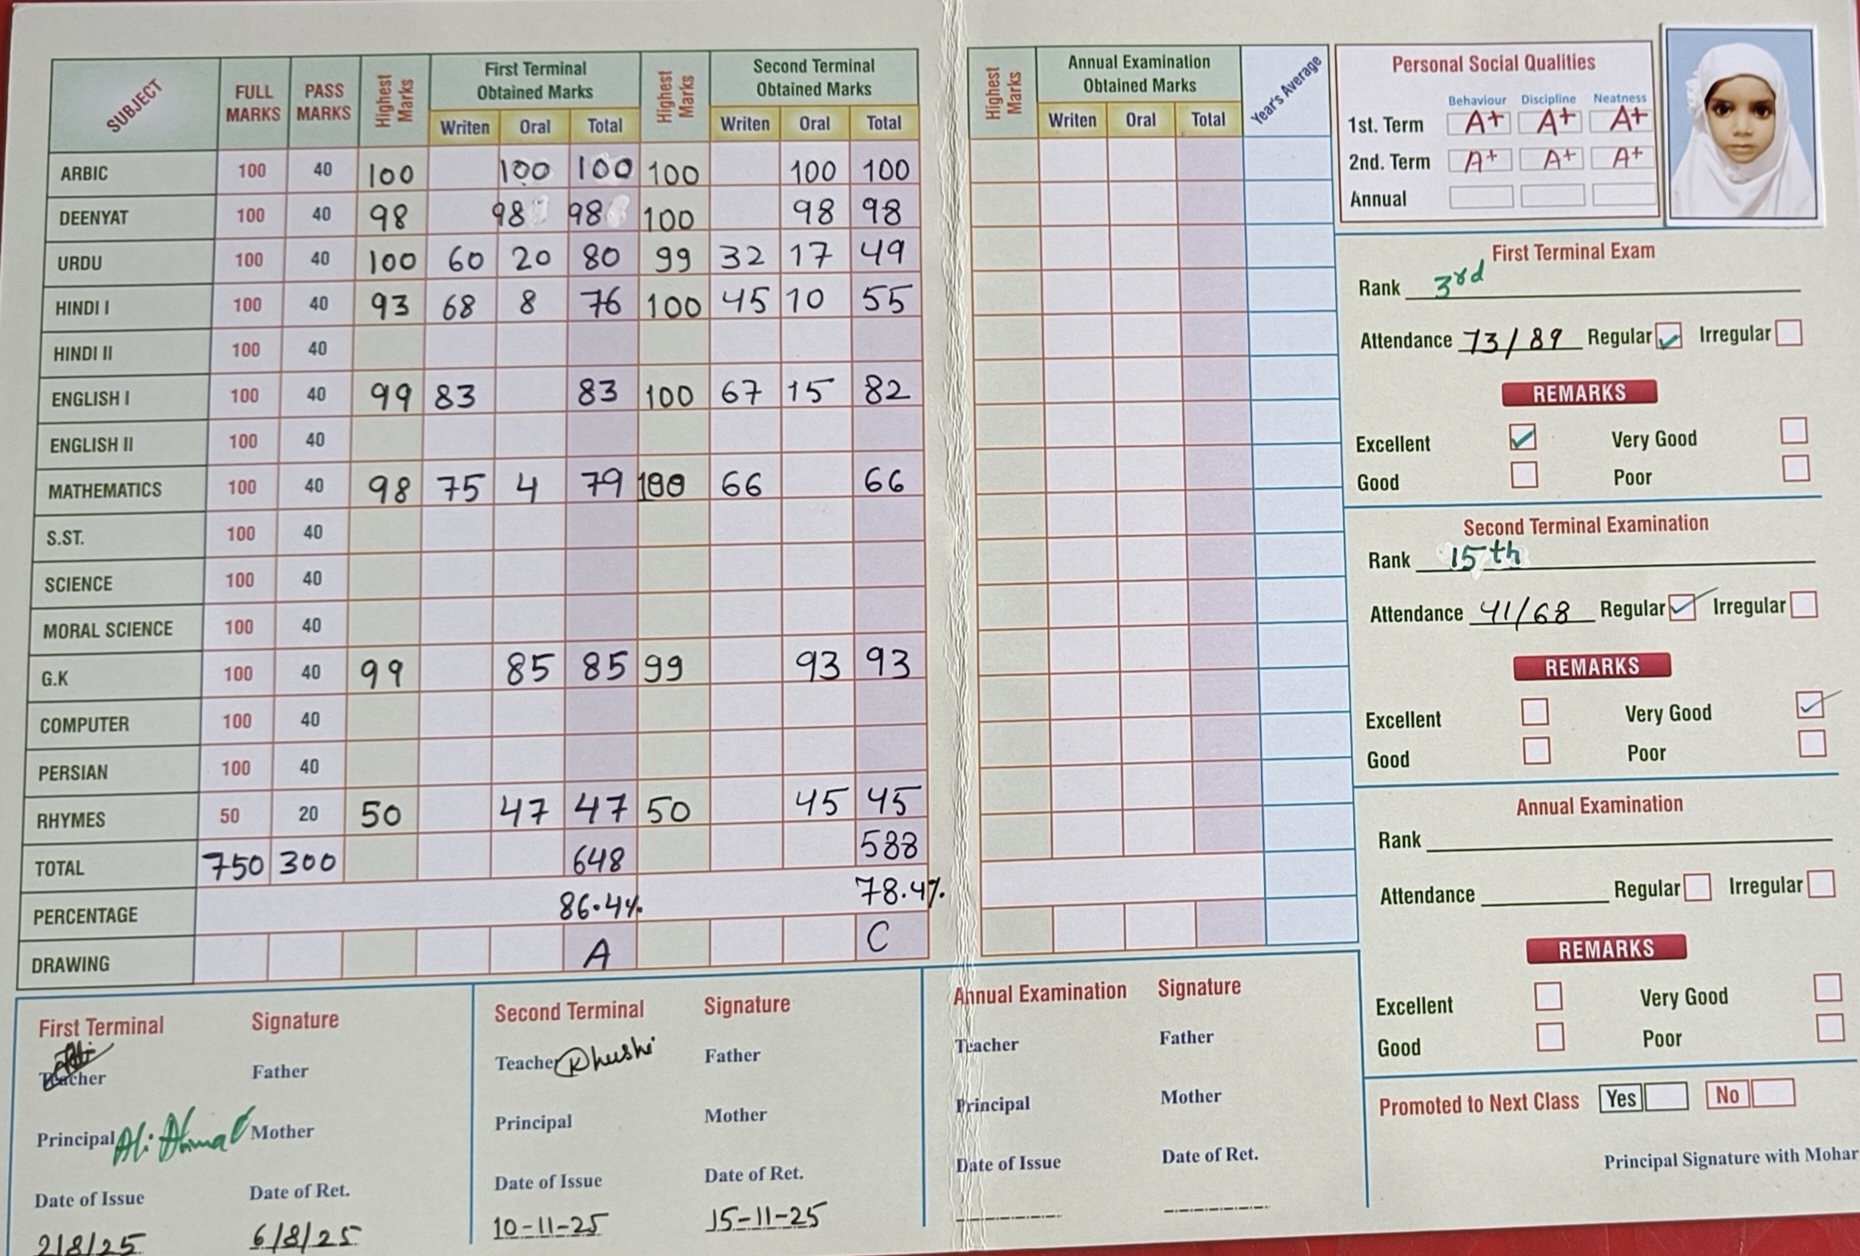 SUBJECT FULL MARKS PASS MARKS Highest Marks First Terminal Obtained Marks Highest Marks Second Terminal Obtained Marks
Writen Oral Total Writen Oral Total
ARBIC 100 40 100 100 100 100 100 100
DEENYAT 100 40 98 98 98 100 98 98
URDU 100 40 100 60 20 80 99 32 17 49
HINDI I 100 40 93 68 8 76 100 45 10 55
HINDI II 100 40
ENGLISH I 100 40 99 83 83 100 67 15 82
ENGLISH II 100 40
MATHEMATICS 100 40 98 75 4 79 100 66 66
S.ST. 100 40
SCIENCE 100 40
MORAL SCIENCE 100 40
G.K 100 40 99 85 85 99 93 93
COMPUTER 100 40
PERSIAN 100 40
RHYMES 50 20 50 47 47 50 45 45
TOTAL 750 300 648 588
PERCENTAGE 86.4% 78.4%
DRAWING A C
Highest Marks Annual Examination Obtained Marks Year's Average
Writen Oral Total
Personal Social Qualities
Behaviour Discipline Neatness
1st. Term A+ A+ A+
2nd. Term A+ A+ A+
Annual
First Terminal Exam
Rank 3rd
Attendance 73/89 Regular Irregular
REMARKS
Excellent Very Good
Good Poor
Second Terminal Examination
Rank 15th
Attendance 41/68 Regular Irregular
REMARKS
Excellent Very Good
Good Poor
Annual Examination
Rank
Attendance Regular Irregular
REMARKS
Excellent Very Good
Good Poor
Promoted to Next Class Yes No
Principal Signature with Mohar
First Terminal Signature
Teacher Father
Principal Ali Ahmad Mother
Date of Issue Date of Ret.
2/8/25 6/8/25
Second Terminal Signature
Teacher Khushi Father
Principal Mother
Date of Issue Date of Ret.
10-11-25 15-11-25
Annual Examination Signature
Teacher Father
Principal Mother
Date of Issue Date of Ret.